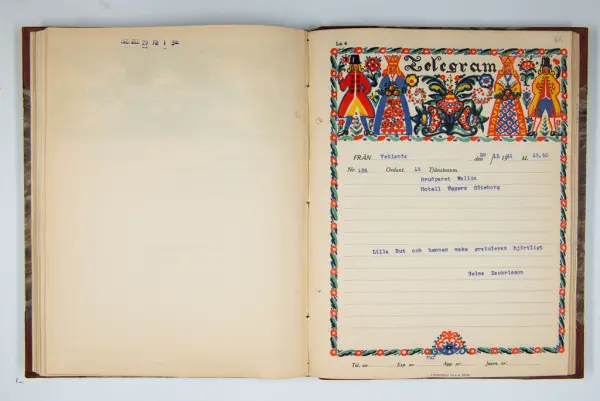 Lx 4
Telegram
FRÅN Vetlanda den 30/12 19 kl. 13,50
Nr. 126 Ordant. 12 Tjänsteanm.
Brudparet Wallin
Hotell Eggers Göteborg
Lilla Rut och hennes make gratuleras hjärtligt
Helma Zackrisson
Tid. nr. Exp. nr. App. nr. Journ. nr.